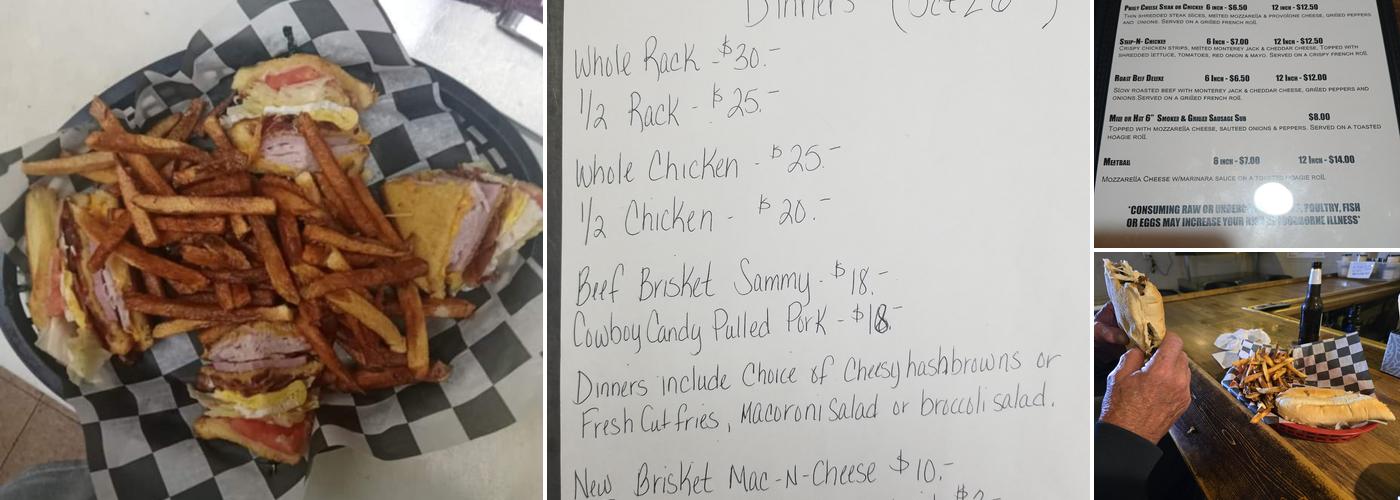 Dinners (Oct 26
Whole Rack - $30.-
1/2 Rack - $25.-
Whole Chicken - $25.-
1/2 Chicken - $20.-
Beef Brisket Sammy - $18.-
Cowboy Candy Pulled Pork - $18.-
Dinners include Choice of Cheesy hashbrowns or
Fresh Cut fries, Macoroni Salad or broccoli salad.
New Brisket Mac-N-Cheese $10.-
Philly Cheese Steak or Chicken 6 inch - $6.50 12 inch - $12.50
Thin shredded steak slices, melted mozzarella & provolone cheese, grilled peppers
and onions. Served on a grilled french roll.
Strip-N-Chicken 6 Inch - $7.00 12 Inch - $12.50
Crispy chicken strips, melted monterey jack & cheddar cheese, topped with
shredded lettuce, tomatoes, red onion & mayo. Served on a crispy french roll.
Roast Beef Deluxe 6 Inch - $6.50 12 Inch - $12.00
Slow roasted beef with monterey jack & cheddar cheese, grilled peppers and
onions. Served on a grilled french roll.
Mild or Hot 6" Smoked & Grilled Sausage Sub $8.00
Topped with mozzarella cheese, sauteed onions & peppers. Served on a toasted
hoagie roll.
Meetball 6 inch - $7.00 12 Inch - $14.00
Mozzarella Cheese w/marinara sauce on a toasted hoagie roll.
*CONSUMING RAW OR POULTRY, FISH
OR EGGS MAY INCREASE YOUR FOODBORNE ILLNESS*